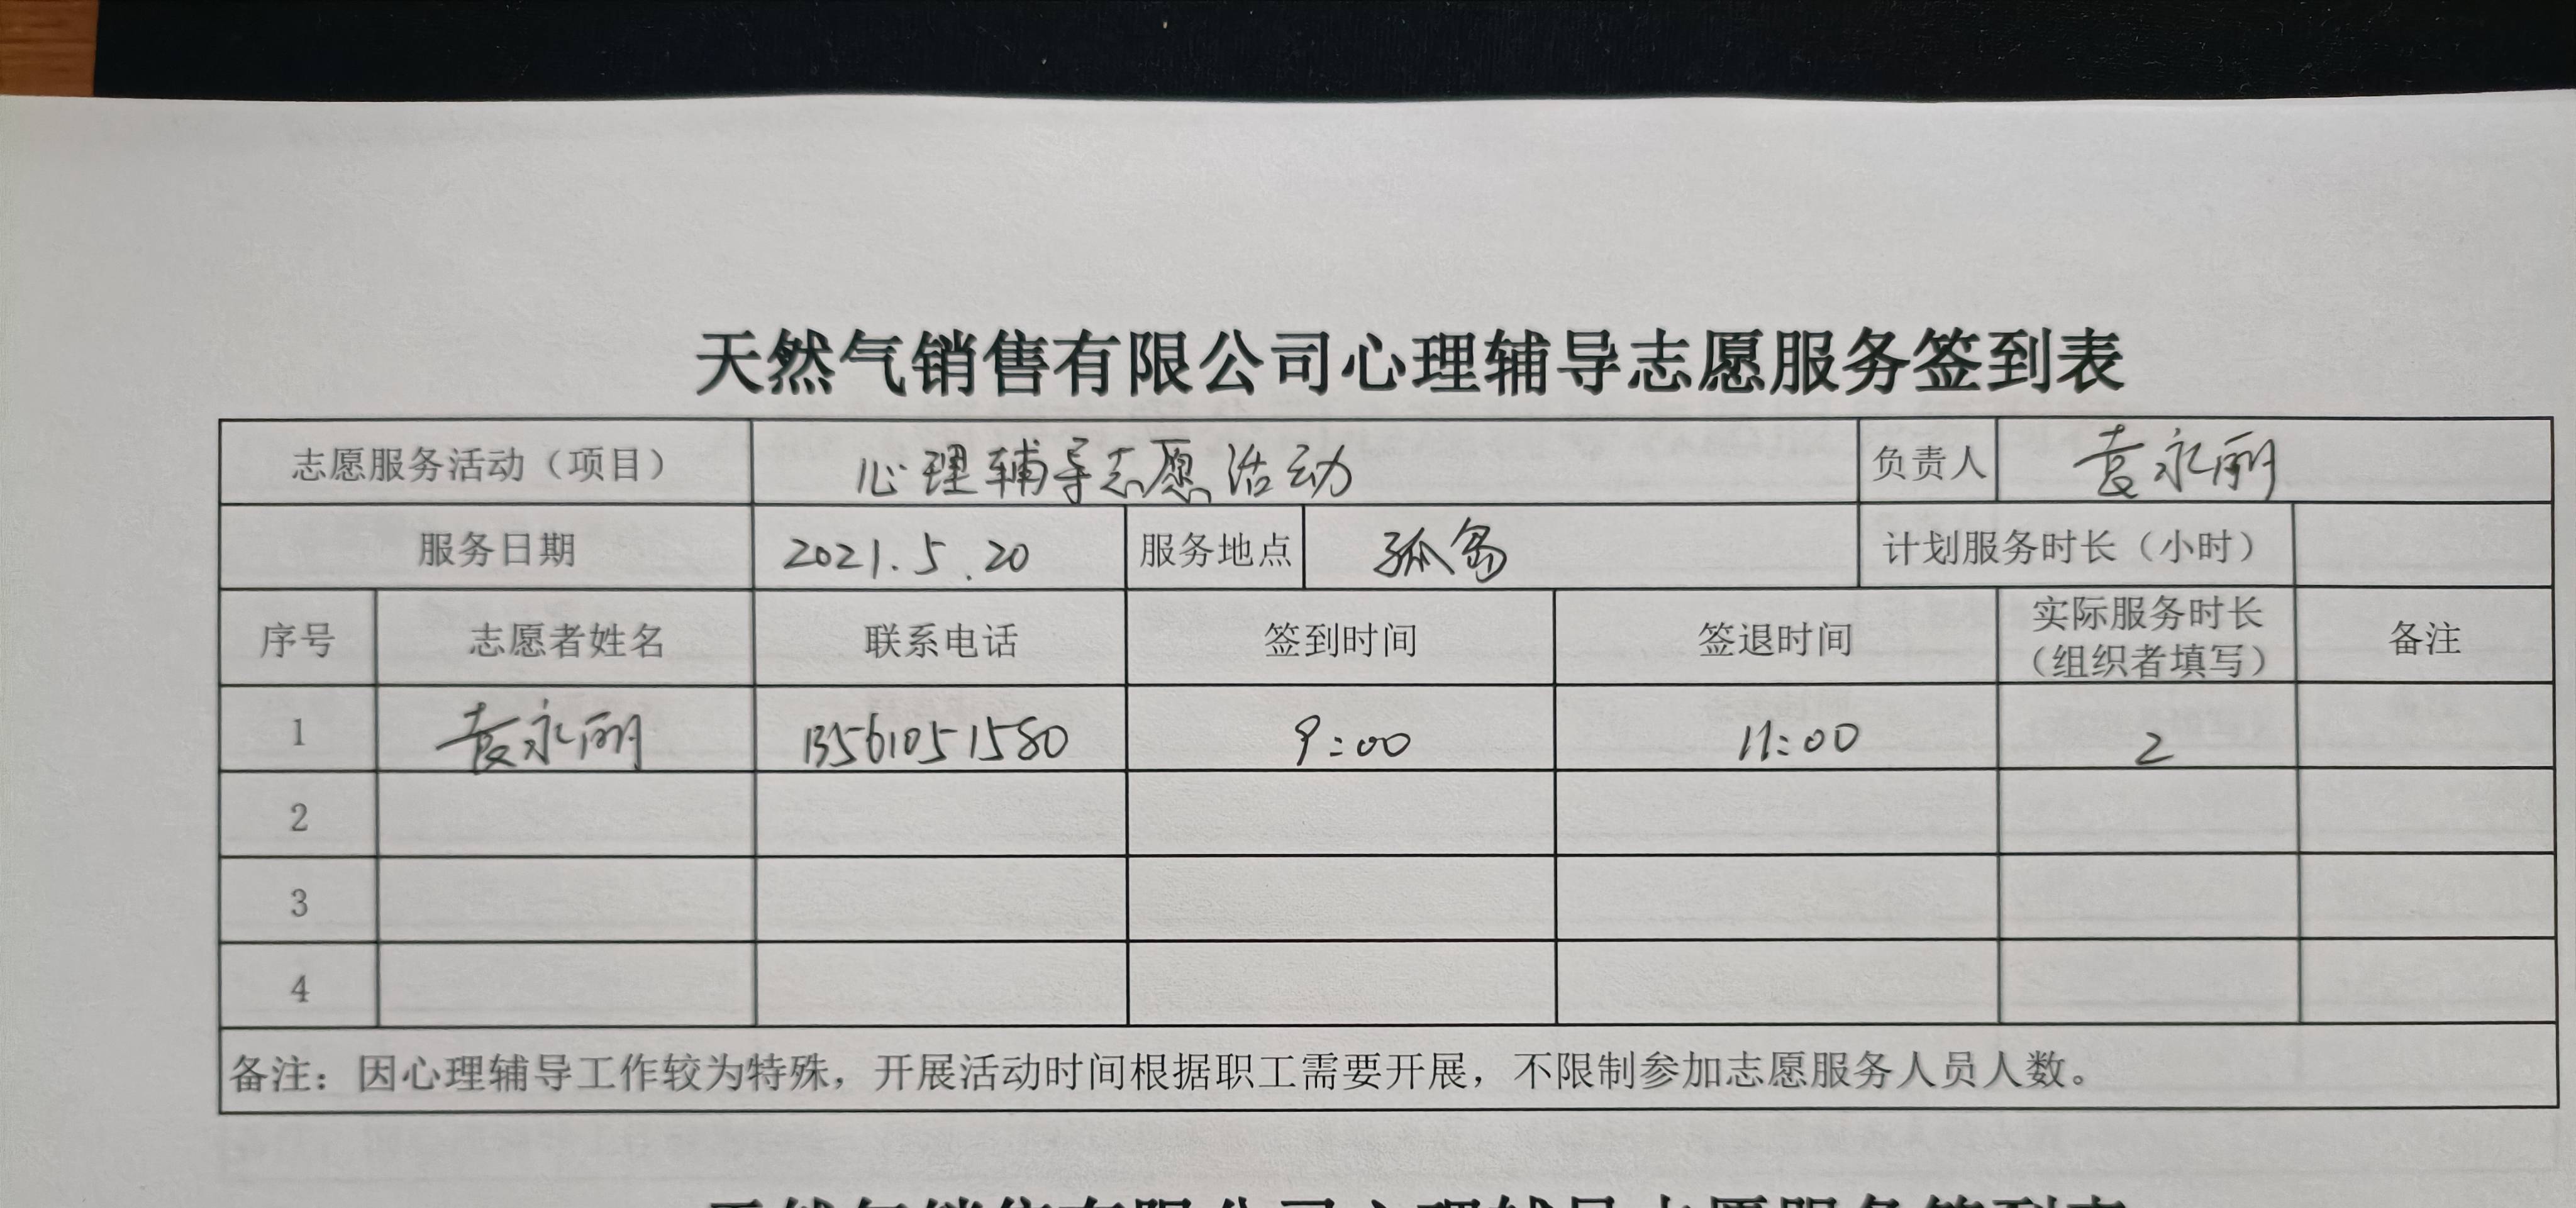 天然气销售有限公司心理辅导志愿服务签到表
志愿服务活动（项目） 心理辅导志愿活动 负责人 袁永丽
服务日期 2021.5.20 服务地点 孤岛 计划服务时长（小时）
序号 志愿者姓名 联系电话 签到时间 签退时间 实际服务时长（组织者填写） 备注
1 袁永丽 13561051580 9:00 11:00 2
2
3
4
备注：因心理辅导工作较为特殊，开展活动时间根据职工需要开展，不限制参加志愿服务人员人数。
天然气销售有限公司心理辅导志愿服务签到表